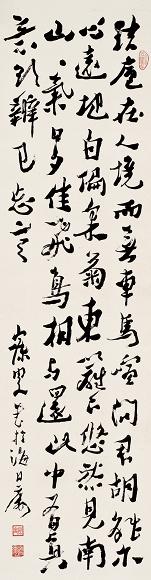 結廬在人境而無車馬喧問君胡能尔
心遠地自偏采菊東籬下悠然見南
山〻氣日夕佳飛鳥相與還此中有真
意欲辯已忘言
叟書於海日廔